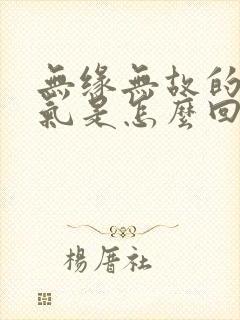 無緣無故的
氣是怎麼回
楊厝社